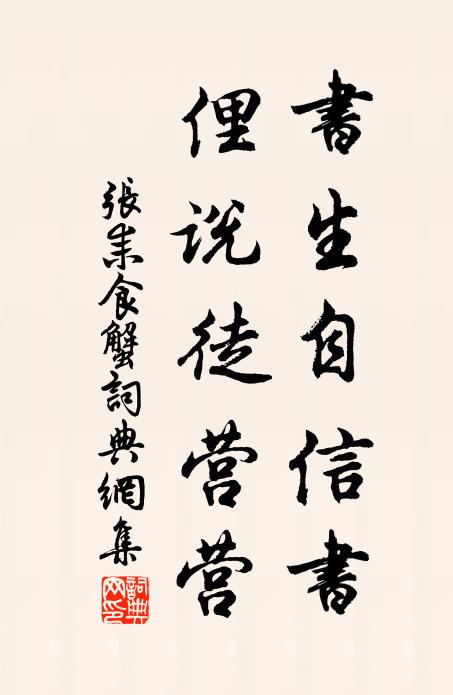 書生自信書
俚説徒营营
張耒食蟹詞典網集
詞典网印